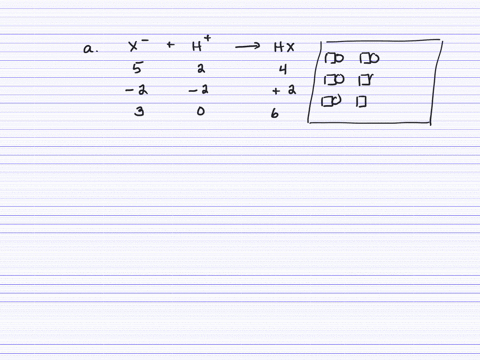 a. X⁻ + H⁺ → HX
5 2 4
-2 -2 +2
3 0 6